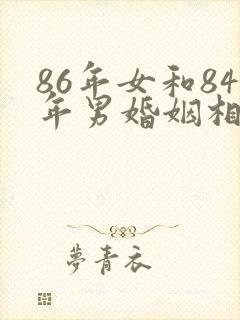 86年女和84
年男婚姻相
夢青衣